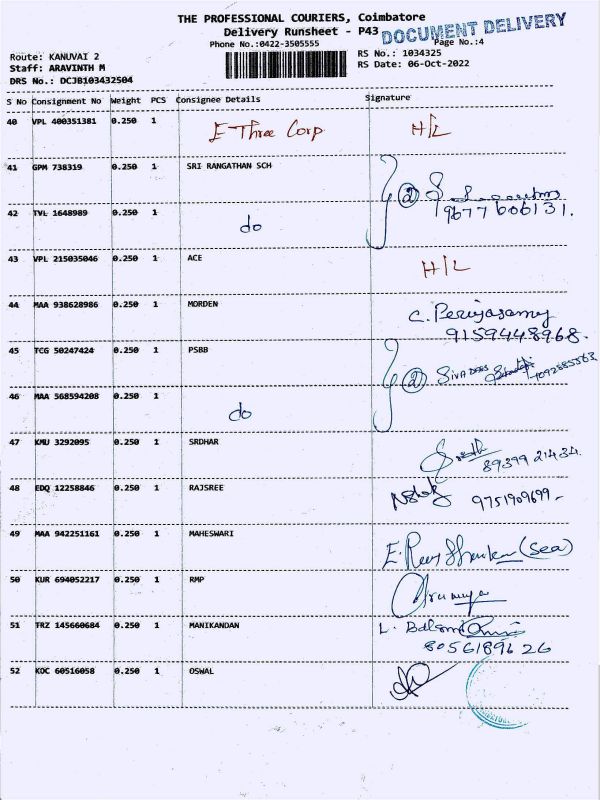 THE PROFESSIONAL COURIERS, Coimbatore
DOCUMENT DELIVERY
Delivery Runsheet - P43
Phone No.:0422-3505555 Page No.:4
Route: KANUVAI 2 RS No.: 1034325
Staff: ARAVINTH M RS Date: 06-Oct-2022
DRS No.: DCJB103432504
S No Consignment No Weight PCS Consignee Details Signature
40 VPL 400351381 0.250 1 E Three Corp H/L
41 GPM 738319 0.250 1 SRI RANGATHAN SCH
② 9677606131.
42 TVL 1648989 0.250 1 do
43 VPL 215035046 0.250 1 ACE H/L
44 MAA 938628986 0.250 1 MORDEN C. Periyasamy
9159448968.
45 TCG 50247424 0.250 1 PSBB
② SIVADEAS 7092885563
46 MAA 568594208 0.250 1 do
47 KMU 3292095 0.250 1 SRDHAR
89399 21434.
48 EDQ 12258846 0.250 1 RAJSREE 9751909699-
49 MAA 942251161 0.250 1 MAHESWARI (Sea)
50 KUR 694052217 0.250 1 RMP
51 TRZ 145660684 0.250 1 MANIKANDAN
8056189626
52 KOC 60516058 0.250 1 OSWAL